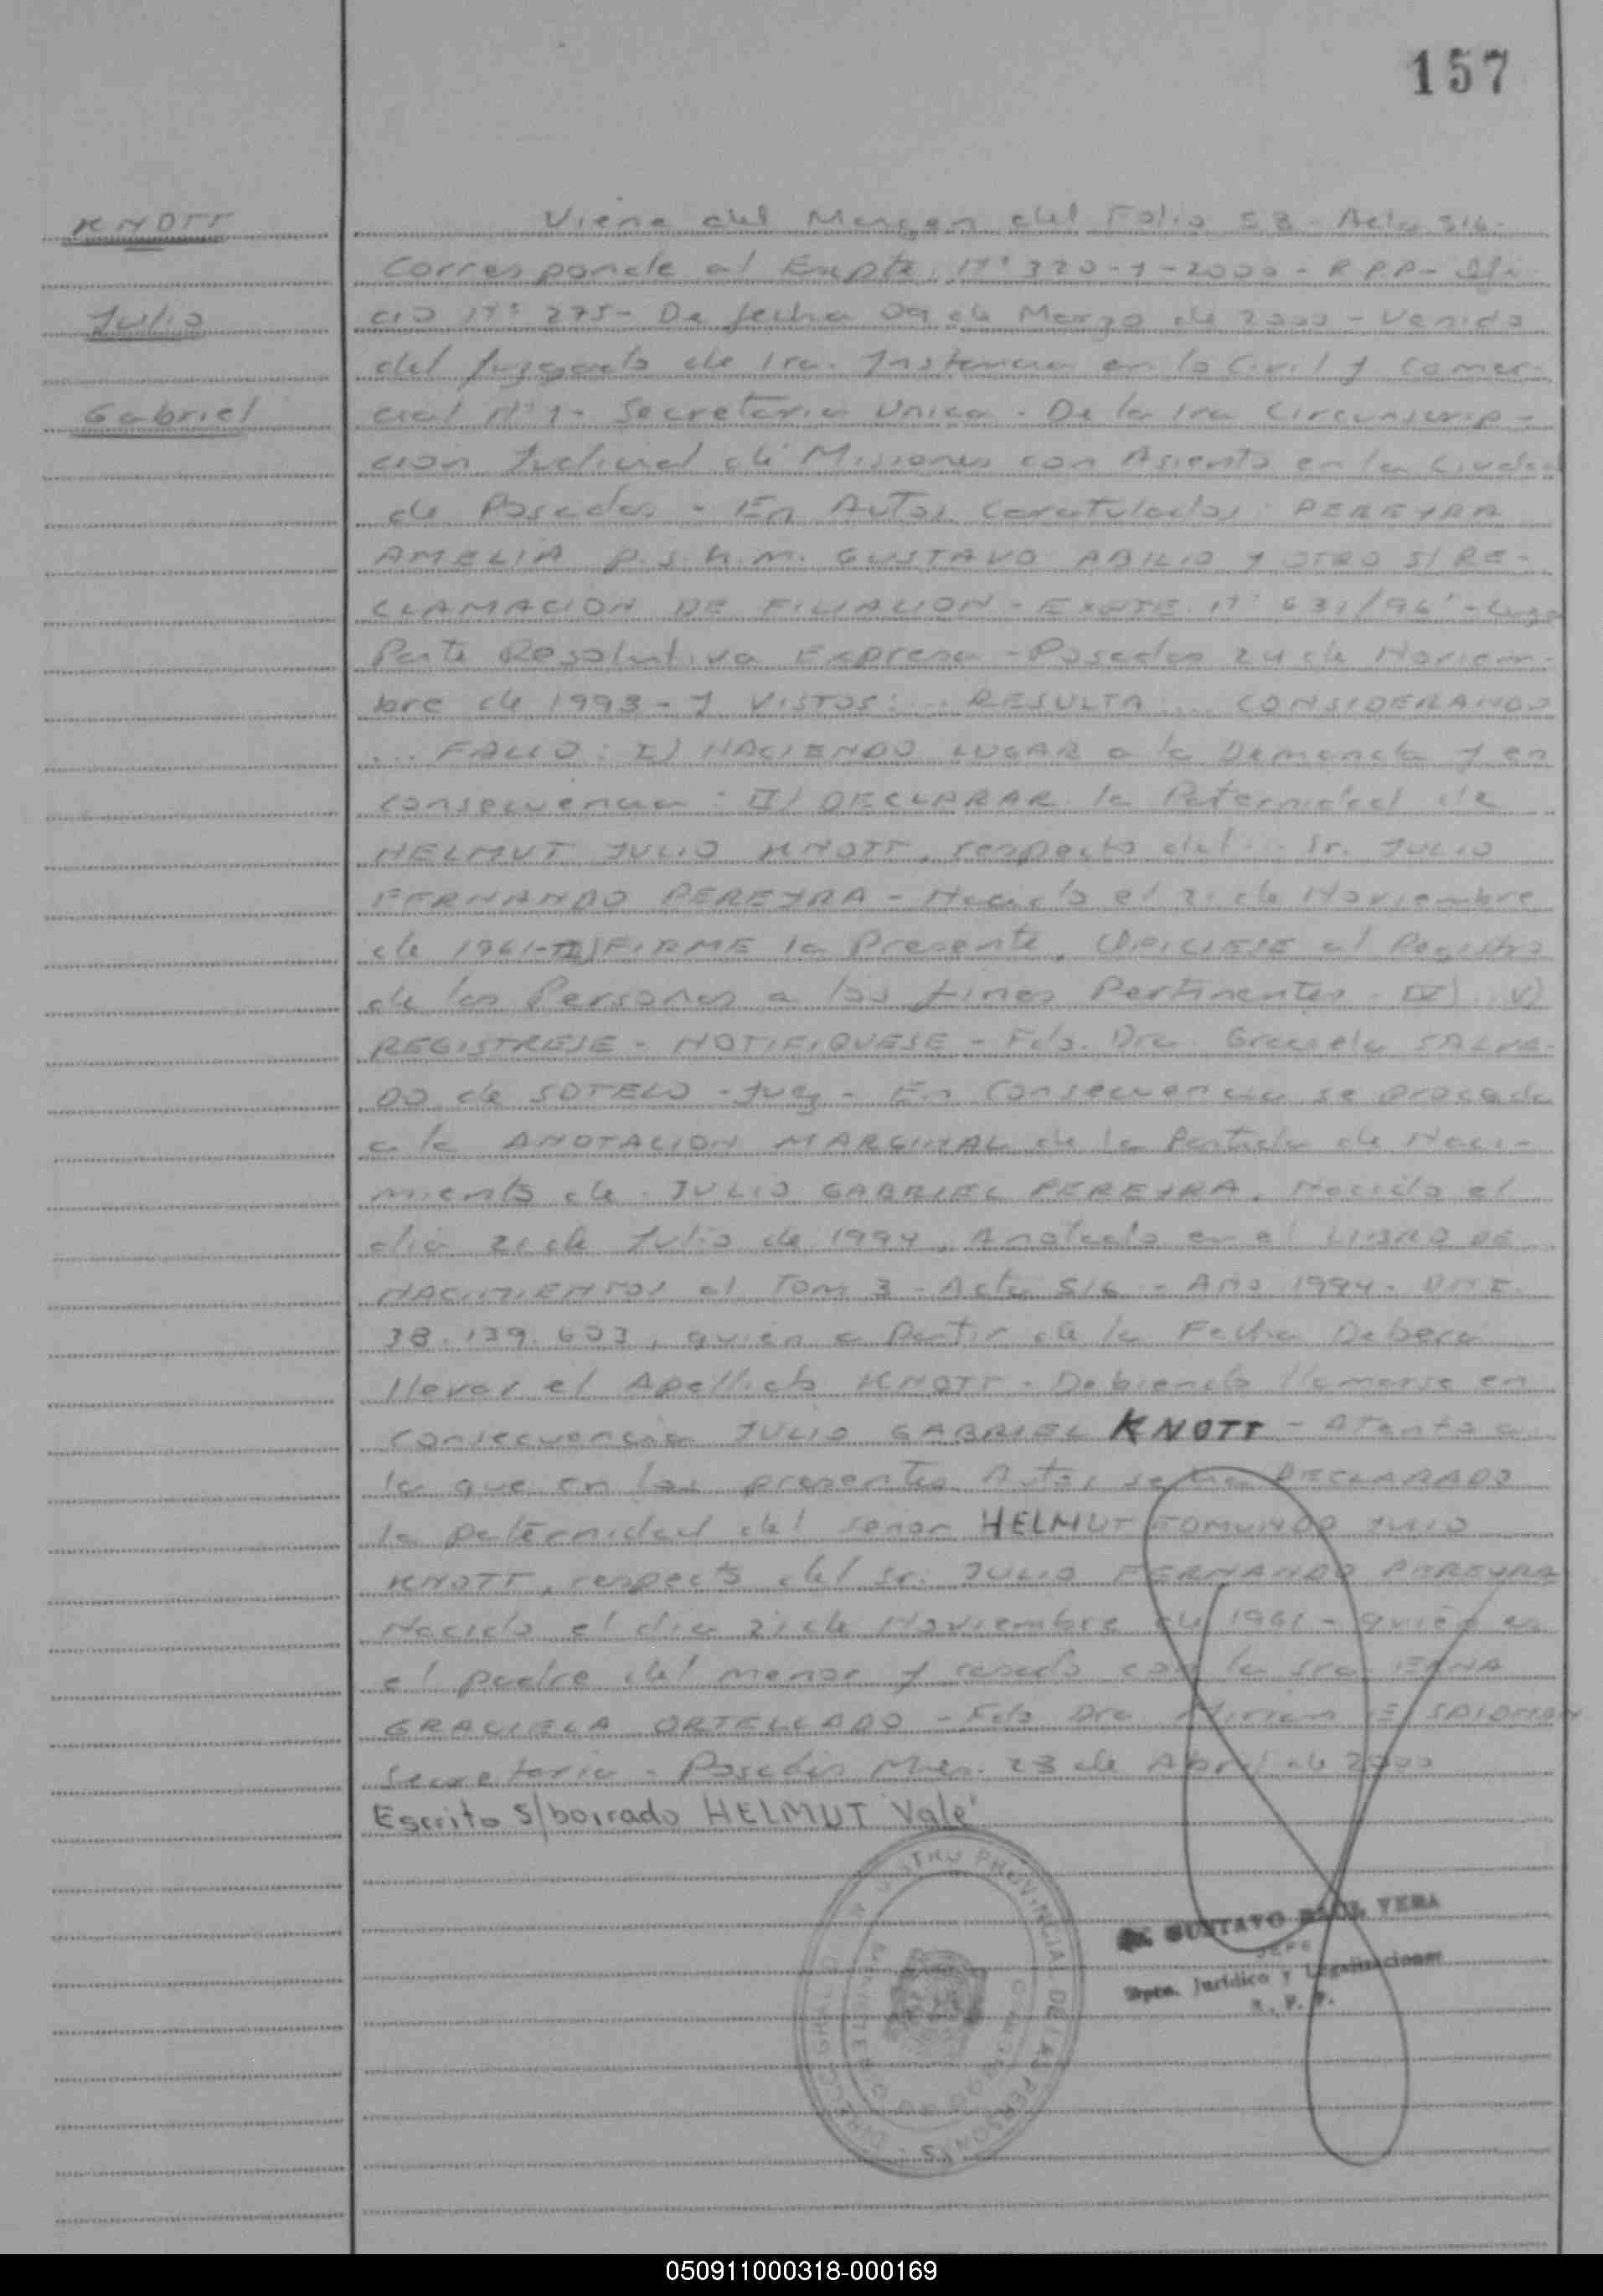 157
KNOTT
Julio
Gabriel
Viene del Margen del Folio 53 - Acta 516-
Corresponde al Expte. Nº 320-1-2000 - RPP - Ofi-
cio Nº 275- De fecha 09 de Marzo de 2000 - Venido
del Juzgado de 1ra. Instancia en lo Civil y Comer-
cial Nº 1 - Secretaria Unica - De la 1ra Circunscrip-
cion Judicial de Misiones con Asiento en la Ciudad
de Posadas - En Autos Caratulados PEREYRA
AMELIA P.S.H.M. GUSTAVO ABILIO Y OTRO S/ RE-
CLAMACION DE FILIACION - EXPTE. Nº 631/96' - Cuya
Parte Resolutiva Expresa - Posadas 24 de Noviem-
bre de 1993 - Y VISTOS: ... RESULTA ... CONSIDERANDO
... FALLO: I) HACIENDO LUGAR a la Demanda y en
consecuencia: II) DECLARAR la Paternidad de
HELMUT JULIO KNOTT, respecto del ... Sr. JULIO
FERNANDO PEREYRA - Nacido el 21 de Noviembre
de 1961 - III) FIRME la Presente, OFICIESE al Registro
de las Personas a los fines Pertinentes - IV) .. V)
REGISTRESE - NOTIFIQUESE - Fdo. Dra. Graciela SALVA-
DO de SOTELO - Juez - En Consecuencia se procede
a la ANOTACION MARGINAL de la Partida de Naci-
miento de JULIO GABRIEL PEREYRA, Nacido el
dia 21 de Julio de 1994, Anotado en el LIBRO DE
NACIMIENTOS al Tomo 3 - Acta 516 - Año 1994 - DNI
38.139.603, quien a Partir de la Fecha Debera
llevar el Apellido KNOTT - Debiendo llamarse en
consecuencia JULIO GABRIEL KNOTT - Atento a
lo que en los presentes Autos se ha DECLARADO
la paternidad del señor HELMUT EDMUNDO JULIO
KNOTT, respecto del Sr. JULIO FERNANDO PEREYRA
Nacido el dia 21 de Noviembre de 1961 - quien es
el padre del menor y casado con la sra
GRACIELA ORTELLADO - Fdo Dra Miriam E. SALOMON
Secretaria - Posadas Mnes. 28 de Abril de 2000
Escrito S/borrado HELMUT 'Vale'
REGISTRO PROVINCIAL DE LAS PERSONAS
GUSTAVO RAUL VERA
JEFE
Dpto. Jurídico y Legalizaciones
R. P. P.
050911000318-000169